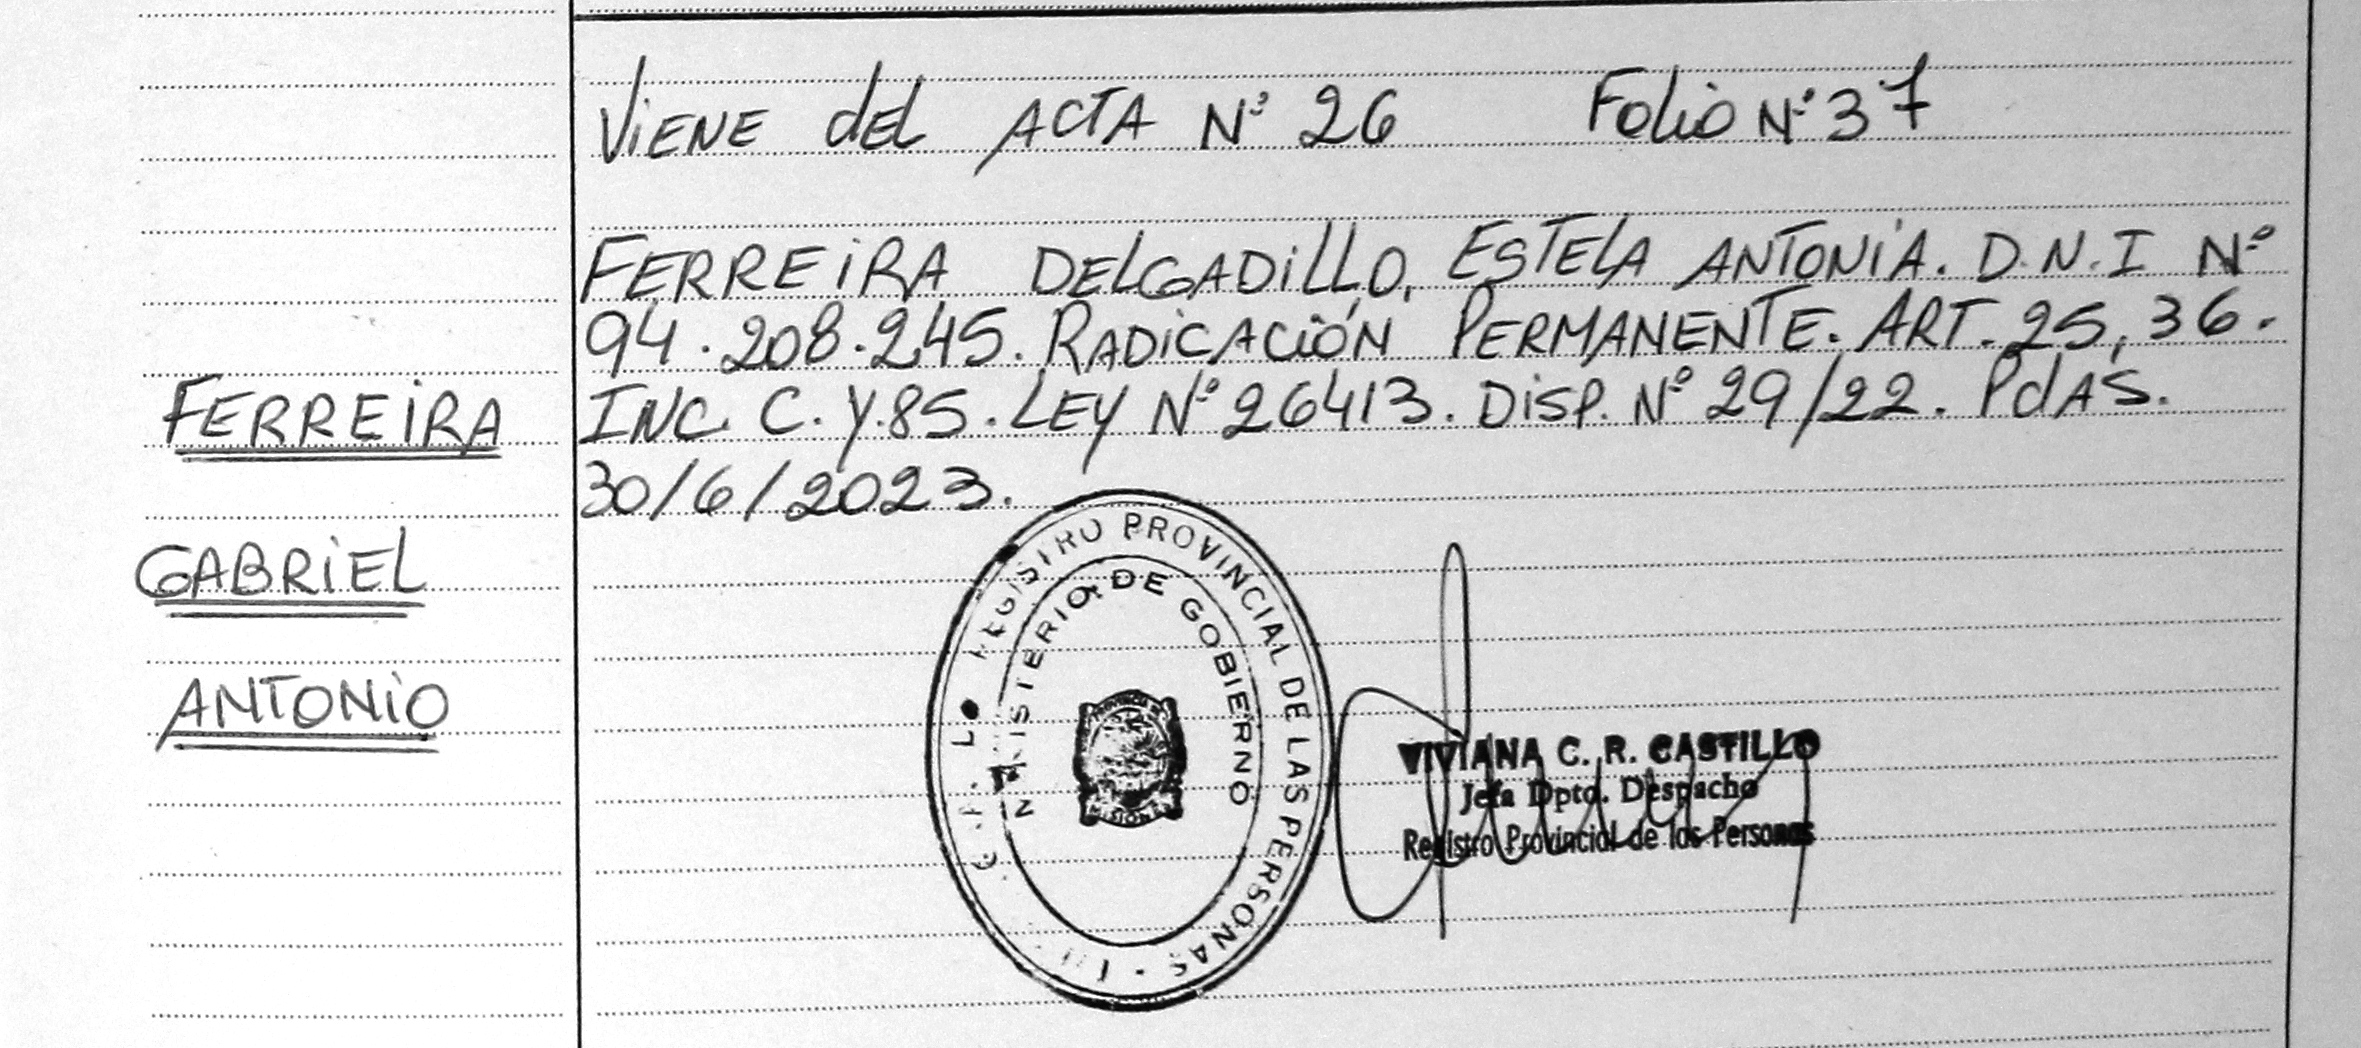 Viene del Acta Nº 26 Folio Nº 37
Ferreira Delgadillo, Estela Antonia. D.N.I Nº
94.208.245. Radicación Permanente. Art. 25, 36.
Inc. C. Y. 85. Ley Nº 26413. Disp. Nº 29/22. Pdas.
30/6/2023.
Ferreira
Gabriel
Antonio
REGISTRO PROVINCIAL DE LAS PERSONAS
MINISTERIO DE GOBIERNO
VIVIANA C. R. CASTILLO
Jefa Dpto. Despacho
Registro Provincial de las Personas